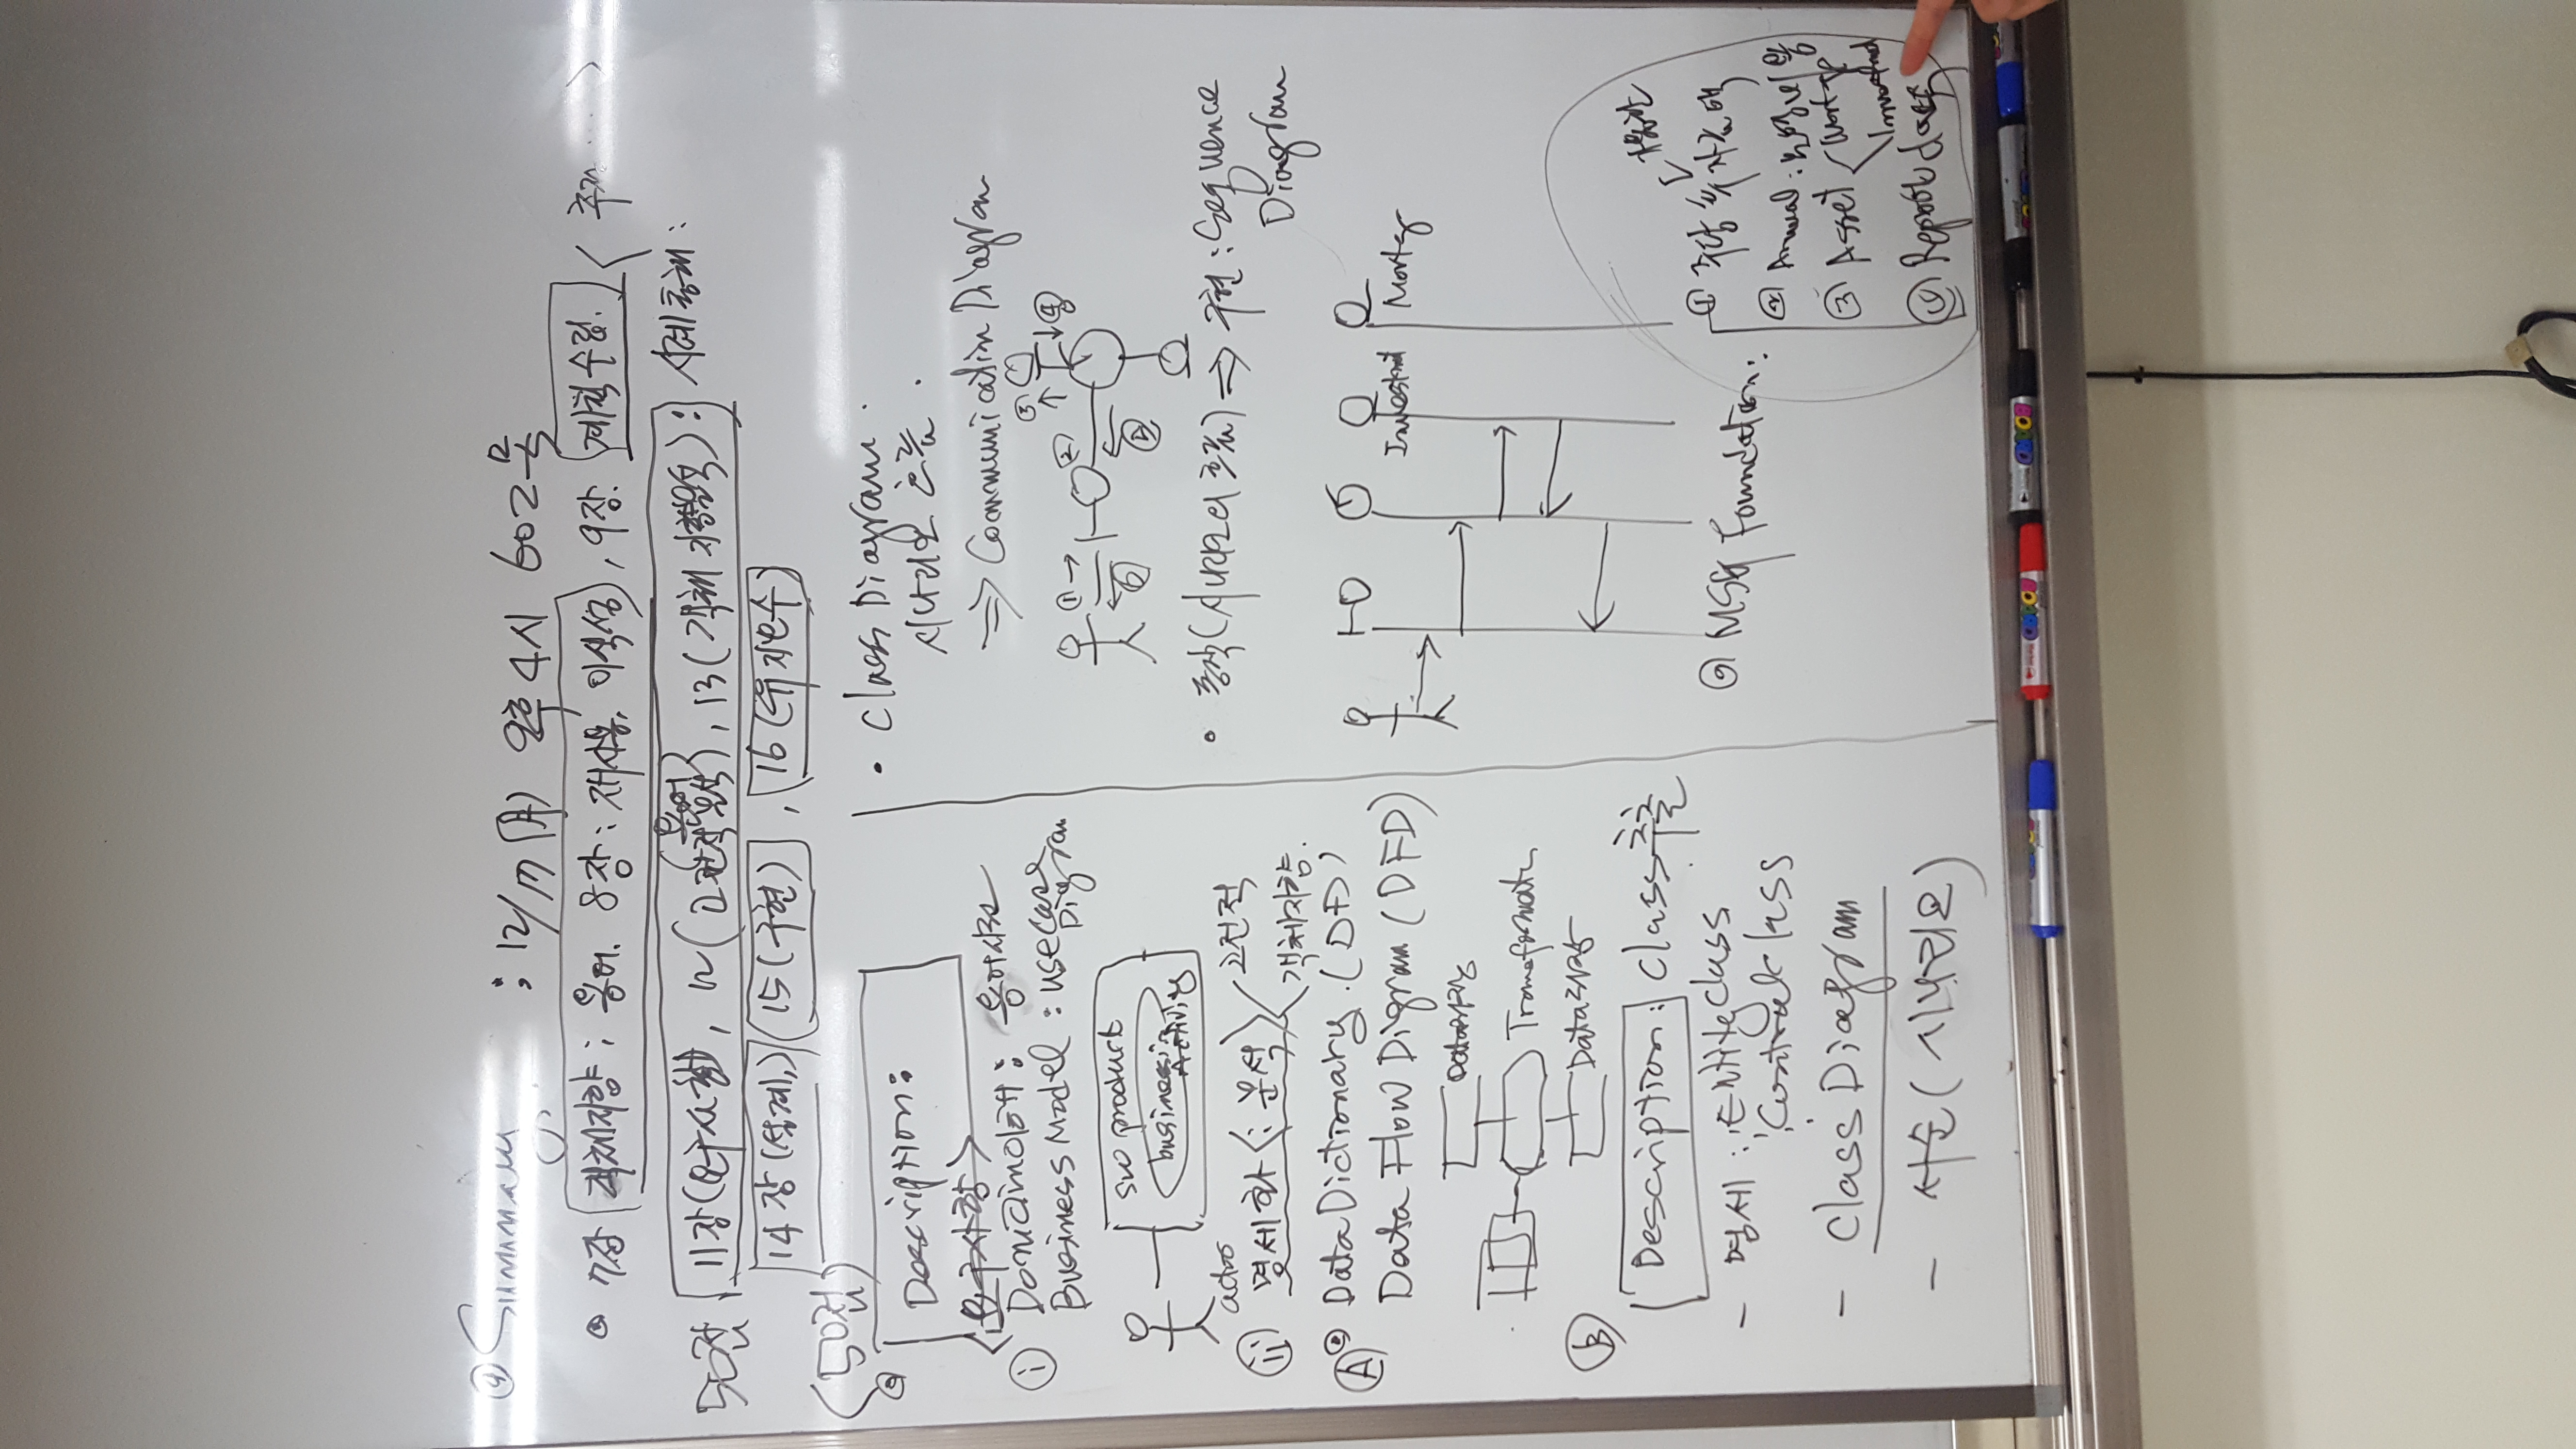 Summary : 12/17 (月) 오후 4시 602호
7장 객체지향 : 용어. 8장 : 재사용, 이식성, 9장. 계획수립. < 추정 ... >
50점 11장 (요구사항), 12 (고전적분석), 13 (객체지향분석) : 사례통해 :
(용어)
14장 (설계,) 15 (구현), 16 (유지보수)
(50점)
Description :
<요구사항>
i Domain이해 : 용어사전
Business Model : usecase
Digram
sw product
business
Activity
actor
ii 명세화 < : 분석 > 고전적
객체지향.
A Data Dictionary. (DD)
Data Flow Digram (DFD)
Data저장
Data저장
B
Description : Class 추출
- 명세 : Entity class
Control class
- Class Diagram
- 서순 (시나리오)
• Class Diagram.
시나리오 흐름.
⇒ Communicatin Diagram
① → ② ③ ↑ ↓ ④
⑤ ⑥
• 동작 (시나리오의 흐름) ⇒ 구현 : Sequence
Diagram
MSG Foundation :
가용한
① 주당 투자금액
② Annual : 운영비용
③ Asset
④ Report class